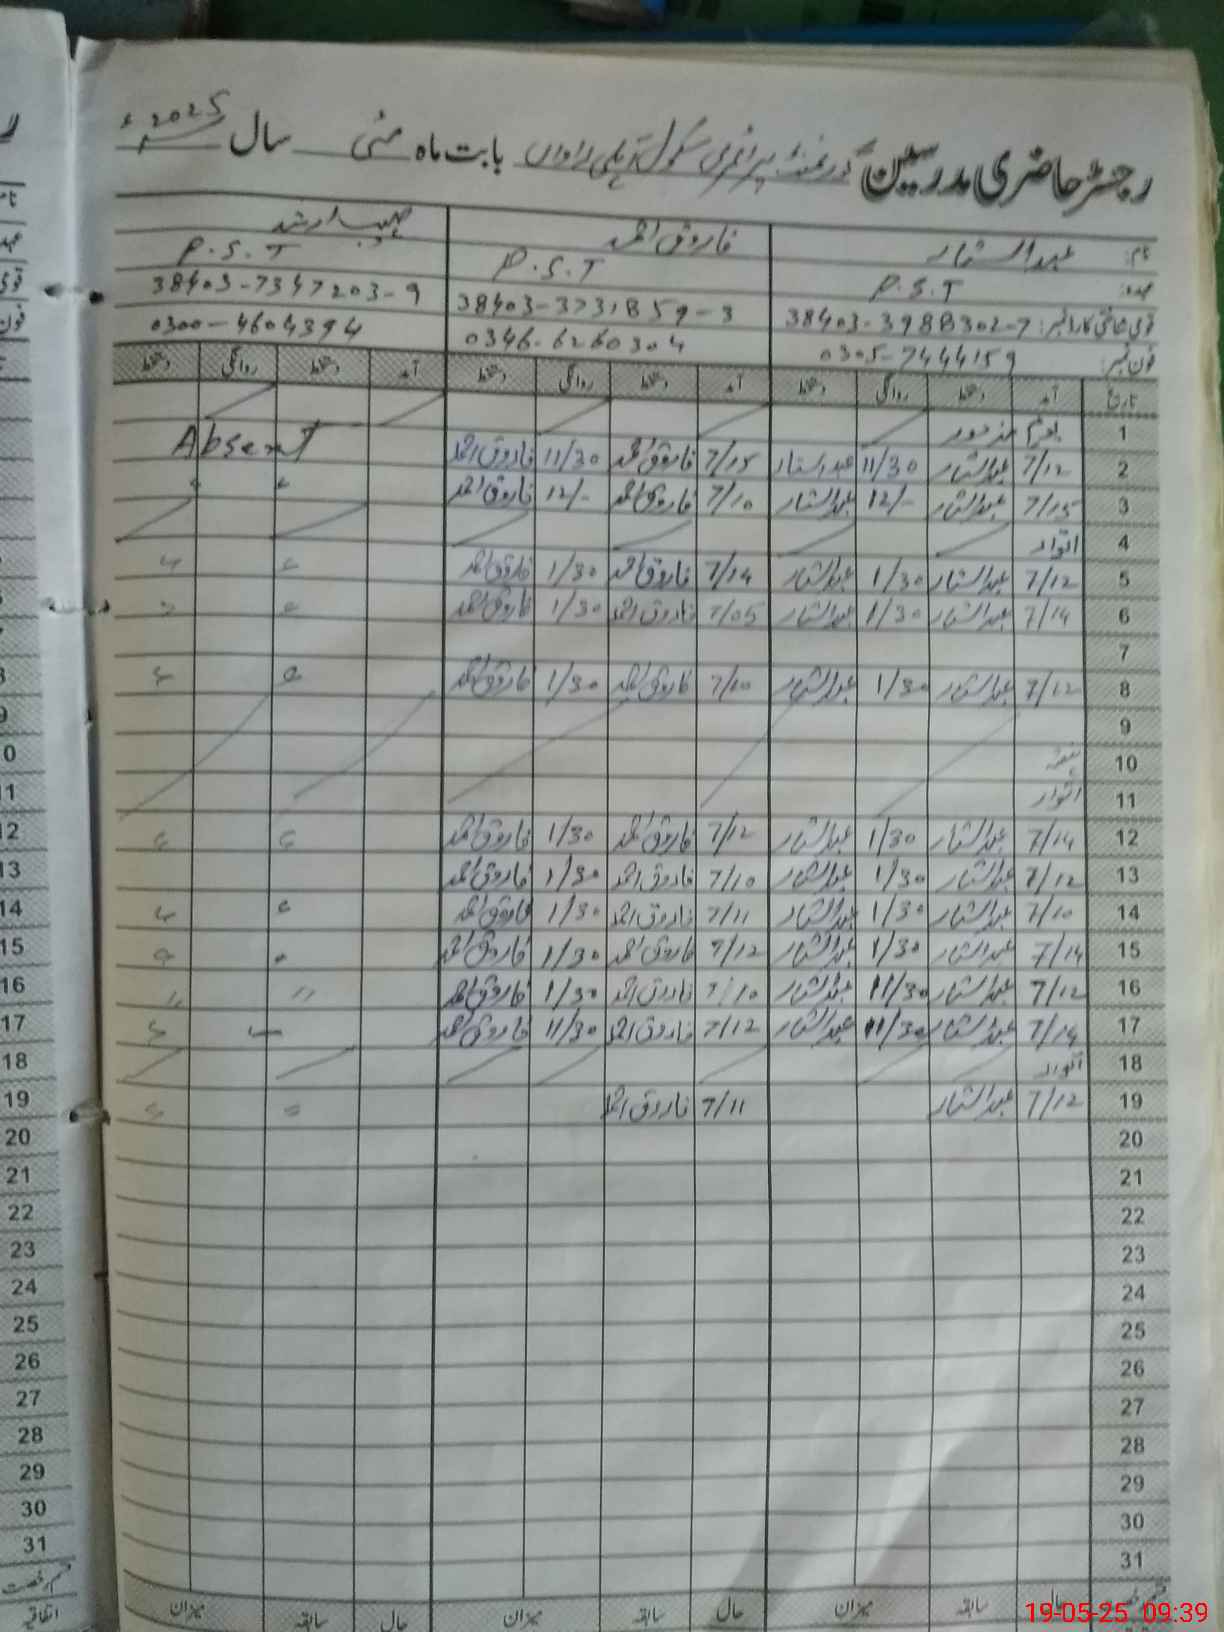 رجسٹر حاضری مدرسین گورنمنٹ پرائمری سکول ڈیلی داواں بابت ماہ مئی سال 2025ء
نام: عبدالستار فاروق احمد صہیب ارشد
عہدہ: P.S.T P.S.T P.S.T
قومی شناختی کارڈ نمبر: 38403-3988302-7 38403-3731859-3 38403-7347203-9
فون نمبر: 0305-7444159 0346-6260304 0300-4604394
تاریخ آمد دستخط روانگی دستخط آمد دستخط روانگی دستخط آمد دستخط روانگی دستخط
1 یوم مزدور
2 7/12 عبدالستار 11/30 عبدالستار 7/15 فاروق احمد 11/30 فاروق احمد Absent
3 7/15 عبدالستار 12/- عبدالستار 7/10 فاروق احمد 12/- فاروق احمد
4 اتوار
5 7/12 عبدالستار 1/30 عبدالستار 7/14 فاروق احمد 1/30 فاروق احمد
6 7/14 عبدالستار 1/30 عبدالستار 7/05 فاروق احمد 1/30 فاروق احمد
7
8 7/12 عبدالستار 1/30 عبدالستار 7/10 فاروق احمد 1/30 فاروق احمد
9
10 ہفتہ
11 اتوار
12 7/14 عبدالستار 1/30 عبدالستار 7/12 فاروق احمد 1/30 فاروق احمد
13 7/12 عبدالستار 1/30 عبدالستار 7/10 فاروق احمد 1/30 فاروق احمد
14 7/10 عبدالستار 1/30 عبدالستار 7/11 فاروق احمد 1/30 فاروق احمد
15 7/14 عبدالستار 1/30 عبدالستار 7/12 فاروق احمد 1/30 فاروق احمد
16 7/12 عبدالستار 11/30 عبدالستار 7/10 فاروق احمد 1/30 فاروق احمد "
17 7/14 عبدالستار 11/30 عبدالستار 7/12 فاروق احمد 11/30 فاروق احمد
18 اتوار
19 7/12 عبدالستار 7/11 فاروق احمد
20
21
22
23
24
25
26
27
28
29
30
31
حال سابقہ میزان حال سابقہ میزان حال سابقہ میزان
19-05-25 09:39